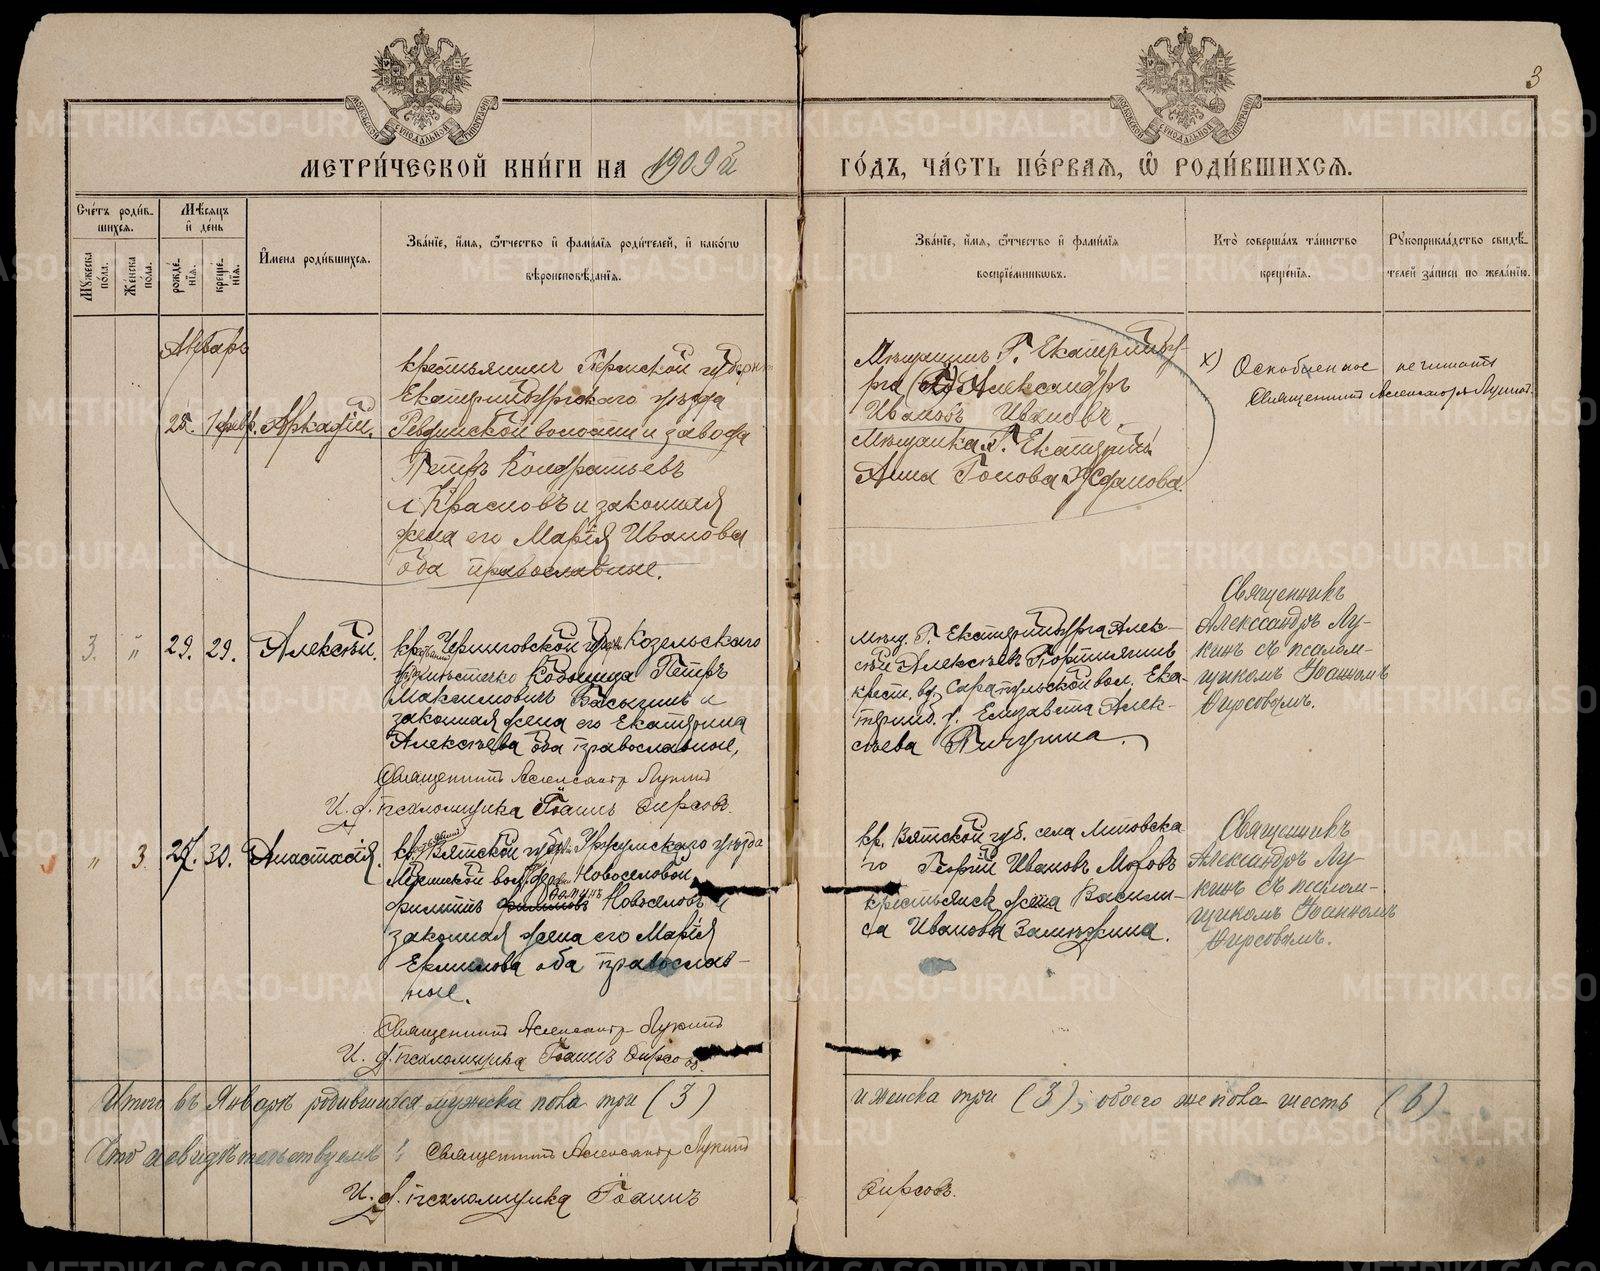 3
МЕТРИ́ЧЕСКОЙ КНИ́ГИ НА 1909й
ГО́ДЪ, ЧА́СТЬ ПЕ́РВАѦ, Ѽ РОДИ́ВШИХСѦ.
Сче́тъ роди́в-
шихсѧ.
Мѣ́сѧцъ
и҆ де́нь
Мꙋ́жеска пола.
Же́нска пола.
рожде́нїѧ.
креще́нїѧ.
И҆мена роди́вшихсѧ.
Зва́нїе, и҆́мѧ, ѻ҆́тчество и҆ фами́лїѧ роди́телей, и҆ како́гѡ
вѣроисповѣ́данїѧ.
Зва́нїе, и҆́мѧ, ѻ҆́тчество и҆ фами́лїѧ
воспрїе́мникѡвъ.
Кто̀ соверша́лъ та́инство
креще́нїѧ.
Рꙋкоприкла́дство свидѣ́-
телей за́писи по жела́нїю.
Январь
25. 1 февр. Аркадій.
крестьянинъ Пермской губерн
Екатеринбургскаго уѣзда
Ревдинской волости и завода
Петръ Кондратьевъ
Красновъ и законная
жена его Марія Иванова
оба православные.
Мѣщанинъ Г. Екатеринбу-
рга Александръ
Ивановъ Ивановъ,
Мѣщанка Г. Екатерин.
Анна Попова
х)
священникъ Александръ Лукинъ.
3. " 29. 29. Алексѣй.
кр. Черниговской губерн Козельскаго
Кобыжча Петръ
Максимовичъ Васынъ и
законная жена его Екатерина
Алексѣева оба православные,
Священникъ Александръ Лукинъ
И. д. псаломщика Іоаннъ Фирсовъ.
мѣщ. Г. Екатеринбурга Алек-
сѣй Алексѣевъ
крест. Сарапульской вол. Ека-
теринб. у. Елизавета Алек-
сѣева Пичугина.
Священникъ
Александръ Лу-
кинъ съ псалом-
щикомъ Іоанномъ
Фирсовымъ.
" 3. 27. 30. Анастасія.
кр. Вятской губерн Уржумскаго уѣзда
вол. дерев Новоселовой
Филиппъ Новоселовъ и
законная жена его Марія
Екимова оба православ-
ные.
Священникъ Александръ Лукинъ
И. д. псаломщика Іоаннъ Фирсовъ.
кр. Вятской губ. села Литовска
го Георгій Ивановъ
крестьянск жена Васили-
са Иванова
Священникъ
Александръ Лу-
кинъ съ псалом-
щикомъ Іоанномъ
Фирсовымъ.
Итого въ Январѣ родившихся мужеска пола три (3)
и женска три (3), обоего же пола шесть (6)
Что и свидѣтельствуемъ: Священникъ Александръ Лукинъ
И. д. псаломщика Іоаннъ
Фирсовъ.
METRIKI.GASO-URAL.RU